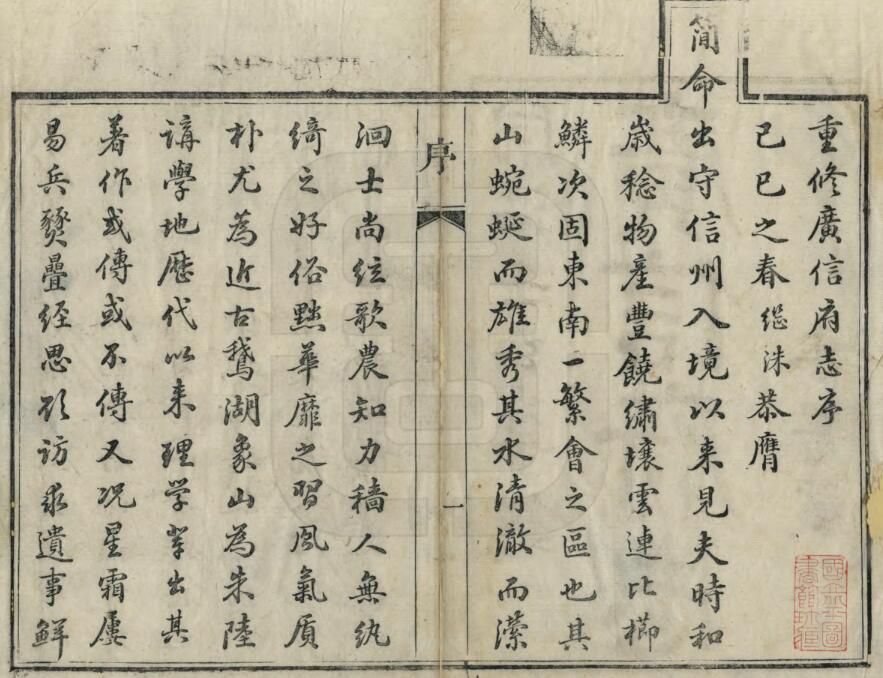 重修廣信府志序
己巳之春繼洙恭膺
簡命出守信州入境以来見夫時和
歲稔物產豐饒繡壤雲連比櫛
鱗次固東南一繁會之區也其
山蜿蜒而雄秀其水清澈而瀠
序
一
洄士尚絃歌農知力穡人無紈
綺之好俗黜華靡之習風氣质
朴尤為近古鵝湖象山為朱陸
講學地歷代以来理学輩出其
著作或傳或不傳又况星霜屢
易兵燹疊經思欲訪求遺事鮮